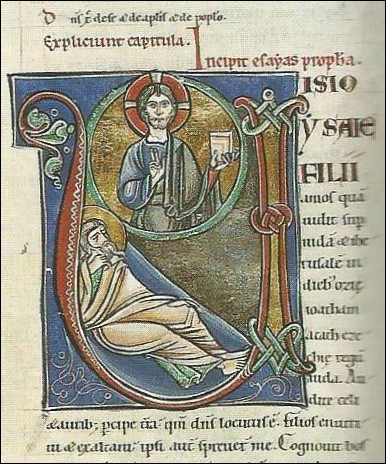 Expliciunt capitula.
Incipit esayas propha.
ISIO
YSAIE
FILII
amos quā
uidit sup
iudā & ihe
rusalē in
dieb' ozie
ioatham
acath eze
chie regū
iuda. Au
dite celi
& aurib; pcipe qm dns locutus ē. filios enutri
ui & exaltaui ipsi aut spreuer me. Cognouit bos